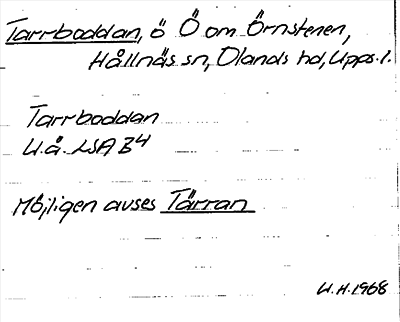 Tarrboddan, ö Ö om Örnstenen,
Hållnäs sn, Olands hd, Upps. l.
Tarrboddan
U.å. LSA B4
Möjligen avses Tärran
U.H. 1968